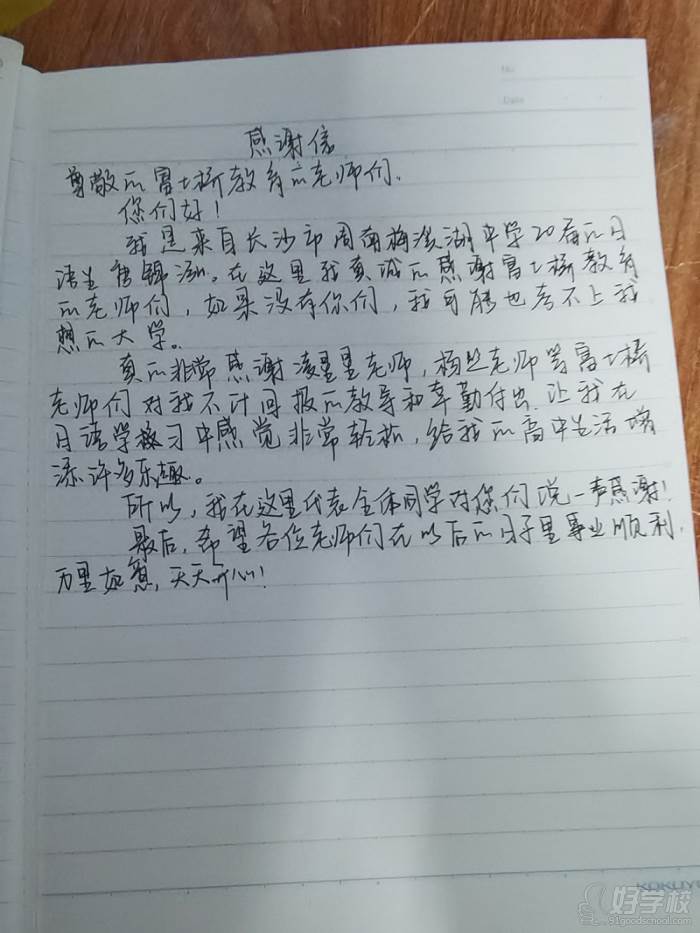 No.
Date
感谢信
尊敬的富士桥教育的老师们.
您们好!
我是来自长沙市周南梅溪湖中学20届的日
语生唐锦. 在这里我真诚的感谢富士桥教育
的老师们, 如果没有你们, 我可能也考不上我
想的大学。
真的非常感谢凌星星老师, 杨老师等富士桥
老师们对我不计回报的教导和辛勤付出. 让我在
日语学习中感觉非常轻松, 给我的高中生活增
添许多乐趣。
所以, 我在这里代表全体同学对您们说一声感谢!
最后, 希望各位老师们在以后的日子里事业顺利,
万里如意, 天天开心!
KOKUY
好学校
91goodschool.com